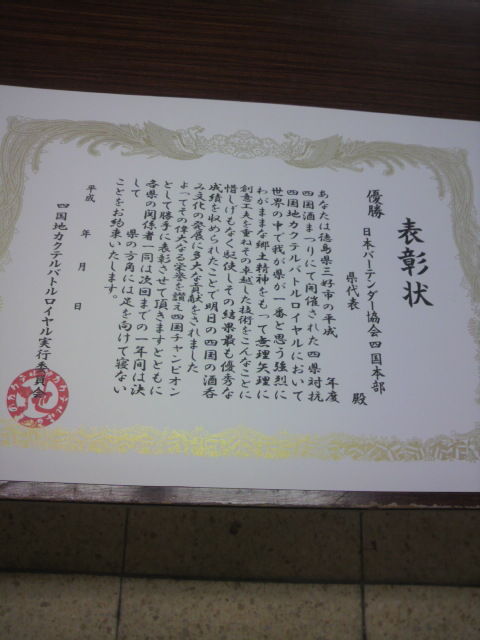 表彰状
優勝
日本バーテンダー協会四国本部
県代表 殿
あなたは徳島県三好市の平成 年度
四国酒まつりにて開催された四県対抗
四国地カクテルバトルロイヤルにおいて
世界の中で我が県が一番と思う強烈に
わがままな郷土精神をもって無理矢理に
創意工夫を重ねその卓越した技術をこんなことに
惜しげもなく駆使しその結果最も優秀な
成績を収められたことで明日の四国の酒呑
み文化の発展に多大な貢献をされました
よってその偉大なる栄誉を讃え四国チャンピオン
として勝手に表彰させて頂きますとともに
各県の関係者一同は次回までの一年間は決
して 県の方角には足を向けて寝ない
ことをお約束いたします。
平成 年 月 日
四国地カクテルバトルロイヤル実行委員会